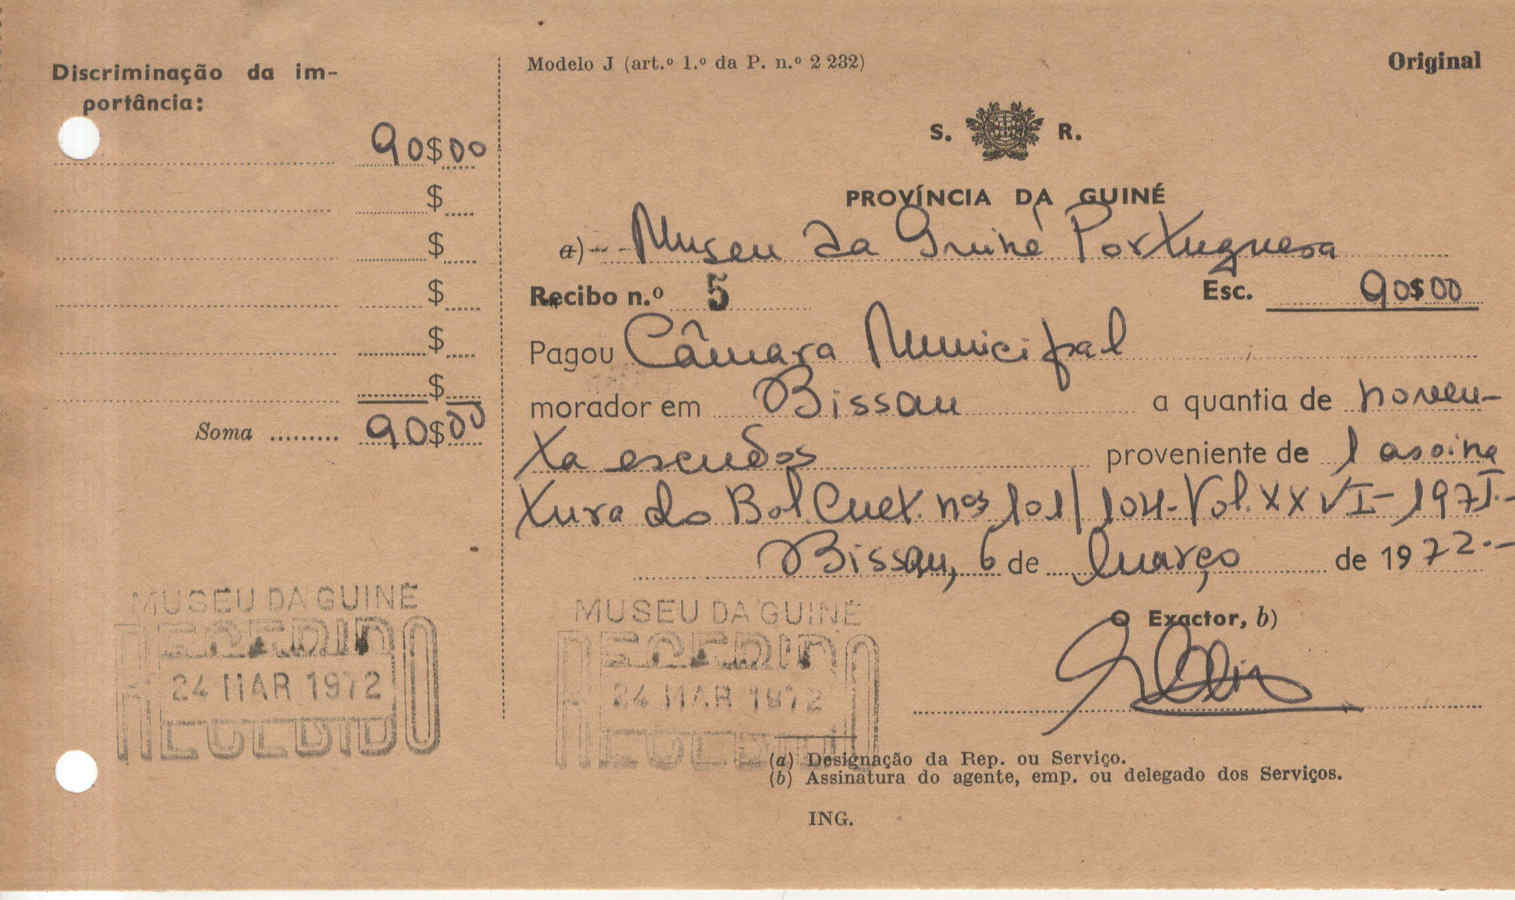 Discriminação da im-
portância:
90$00
$
$
$
$
$
Soma ......... 90$00
Modelo J (art.º 1.º da P. n.º 2 232)
Original
S. R.
PROVÍNCIA DA GUINÉ
a) Museu da Guiné Portuguesa
Recibo n.º 5 Esc. 90$00
Pagou Câmara Municipal
morador em Bissau a quantia de noven-
ta escudos proveniente de 1 assina
tura do Bol. Cult. nos 101/104-Vol. XXVI-1971.-
Bissau, 6 de Março de 1972.-
O Exactor, b)
MUSEU DA GUINÉ
RECEBIDO
24 MAR 1972
RECEBIDO
MUSEU DA GUINÉ
RECEBIDO
24 MAR 1972
RECEBIDO
(a) Designação da Rep. ou Serviço.
(b) Assinatura do agente, emp. ou delegado dos Serviços.
ING.